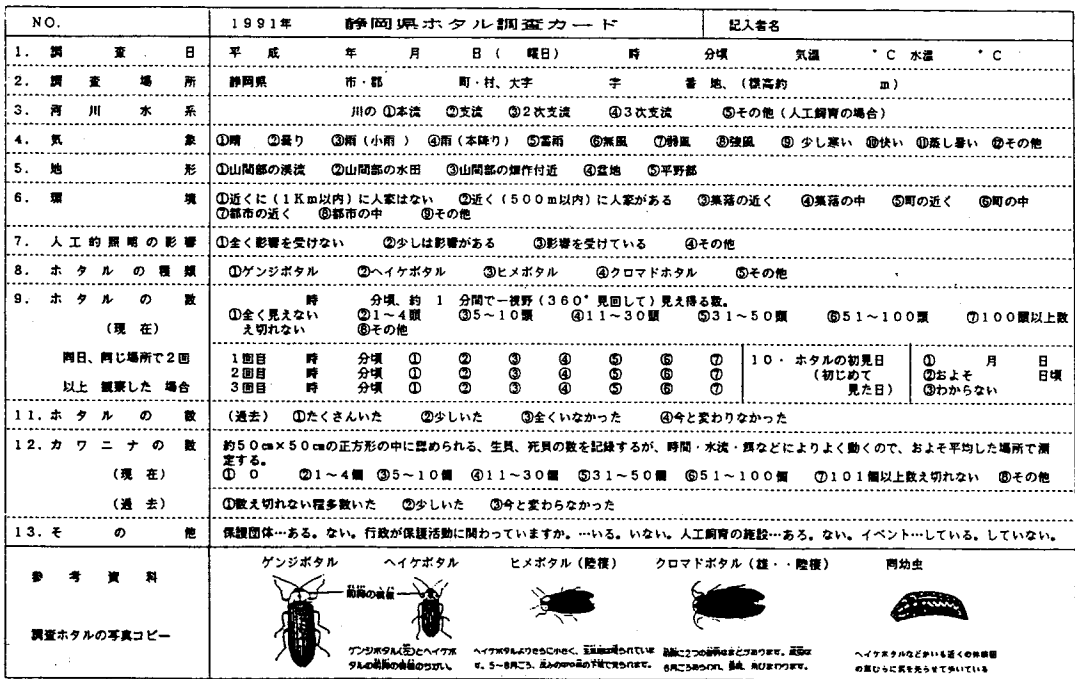 NO.
1991年 静岡県ホタル調査カード
記入者名
1. 調査日 平成 年 月 日( 曜日) 時 分頃 気温 °C 水温 °C
2. 調査場所 静岡県 市・郡 町・村、大字 字 番地、(標高約 m)
3. 河川水系 川の ①本流 ②支流 ③2次支流 ④3次支流 ⑤その他(人工飼育の場合)
4. 気象 ①晴 ②曇り ③雨(小雨 ) ④雨(本降り) ⑤雷雨 ⑥無風 ⑦弱風 ⑧強風 ⑨ 少し寒い ⑩快い ⑪蒸し暑い ⑫その他
5. 地形 ①山間部の渓流 ②山間部の水田 ③山間部の畑作付近 ④盆地 ⑤平野部
6. 環境 ①近くに(1Km以内)に人家はない ②近く(500m以内)に人家がある ③集落の近く ④集落の中 ⑤町の近く ⑥町の中
⑦都市の近く ⑧都市の中 ⑨その他
7. 人工的照明の影響 ①全く影響を受けない ②少しは影響がある ③影響を受けている ④その他
8. ホタルの種類 ①ゲンジボタル ②ヘイケボタル ③ヒメボタル ④クロマドホタル ⑤その他
9. ホタルの数 時 分頃、約 1 分間で一視野(360°見回して)見え得る数。
(現在) ①全く見えない ②1~4頭 ③5~10頭 ④11~30頭 ⑤31~50頭 ⑥51~100頭 ⑦100頭以上数
え切れない ⑧その他
同日、同じ場所で2回
以上 観察した 場合
1回目 時 分頃 ① ② ③ ④ ⑤ ⑥ ⑦
2回目 時 分頃 ① ② ③ ④ ⑤ ⑥ ⑦
3回目 時 分頃 ① ② ③ ④ ⑤ ⑥ ⑦
10・ ホタルの初見日
(初じめて
見た日)
① 月 日
②およそ 日頃
③わからない
11.ホタルの数 (過去) ①たくさんいた ②少しいた ③全くいなかった ④今と変わりなかった
12.カワニナの数 約50㎝×50㎝の正方形の中に認められる、生貝、死貝の数を記録するが、時間・水流・餌などによりよく動くので、およそ平均した場所で測
定する。
(現在) ① 0 ②1~4個 ③5~10個 ④11~30個 ⑤31~50個 ⑥51~100個 ⑦101個以上数え切れない ⑧その他
(過去) ①数え切れない程多数いた ②少しいた ③今と変わらなかった
13.その他 保護団体…ある。ない。行政が保護活動に関わっていますか。…いる。いない。人工飼育の施設…ある。ない。イベント…している。していない。
参考資料
調査ホタルの写真コピー
ゲンジボタル ヘイケボタル ヒメボタル(陸棲) クロマドボタル(雄・・陸棲) 同幼虫
前胸の模様
ゲンジボタル(左)とヘイケボ
タルの前胸の模様のちがい。
ヘイケボタルよりさらに小さく、
す。5~8月ごろ、
前胸に2つの
6月ごろあらわれ、昼間、飛びまわります。
ヘイケボタルなどがいる近くの
の草むらに尻を光らせて歩いている